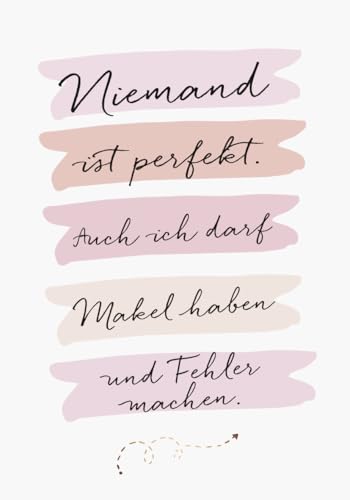 Niemand
ist perfekt.
Auch ich darf
Makel haben
und Fehler
machen.